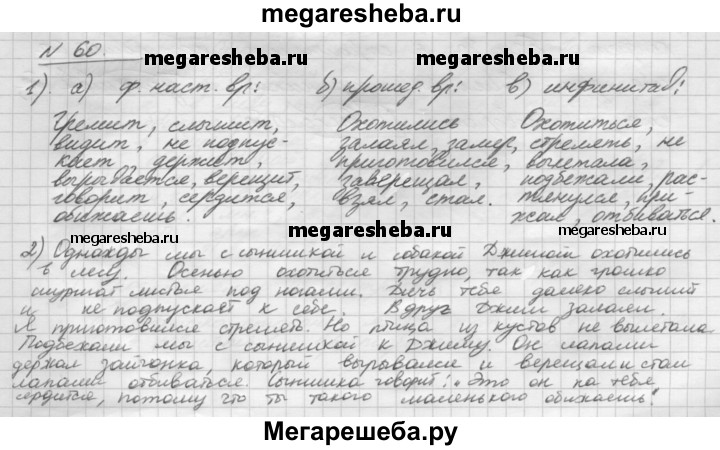 megaresheba.ru
N 60.
megaresheba.ru megaresheba.ru
1). а) ф. наст. вр: б) прошед. вр: в) инфинитив:
Гремит, слышит, Охотились Охотиться,
видит, не подпус- залаял, замер, стрелять, не
кает, держит, приготовился, вылетала,
вырывается, верещит, заверещал, подбежали, рас-
говорит, сердится, взял, стал. тянулся, при-
обижаешь. жал, отбиваться.
megaresheba.ru megaresheba.ru
2) Однажды мы с сынишкой и собакой Джимом охотились
в лесу. Осенью охотиться трудно, так как громко
шуршат листья под ногами. Дичь тебя далеко слышит
и не подпускает к себе. Вдруг Джим залаял.
Я приготовился стрелять. Но птица из кустов не вылетала.
Подбежали мы с сынишкой к Джиму. Он лапами
держал зайчонка, который вырывался и верещал и стал
лапами отбиваться. Сынишка говорит: "Это он на тебя
сердится, потому что ты такого маленького обижаешь."
Мегарешеба.ру